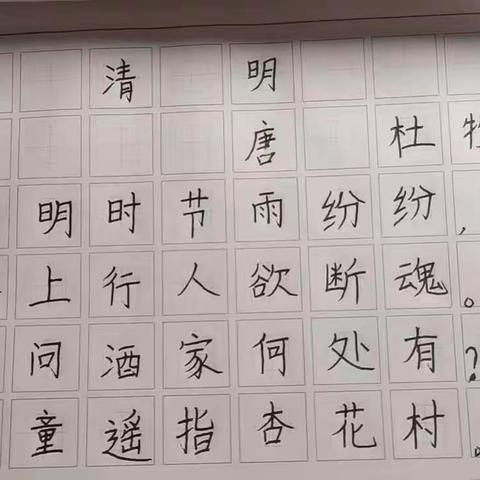 清明
唐 杜牧
明时节雨纷纷,
上行人欲断魂。
问酒家何处有?
童遥指杏花村。